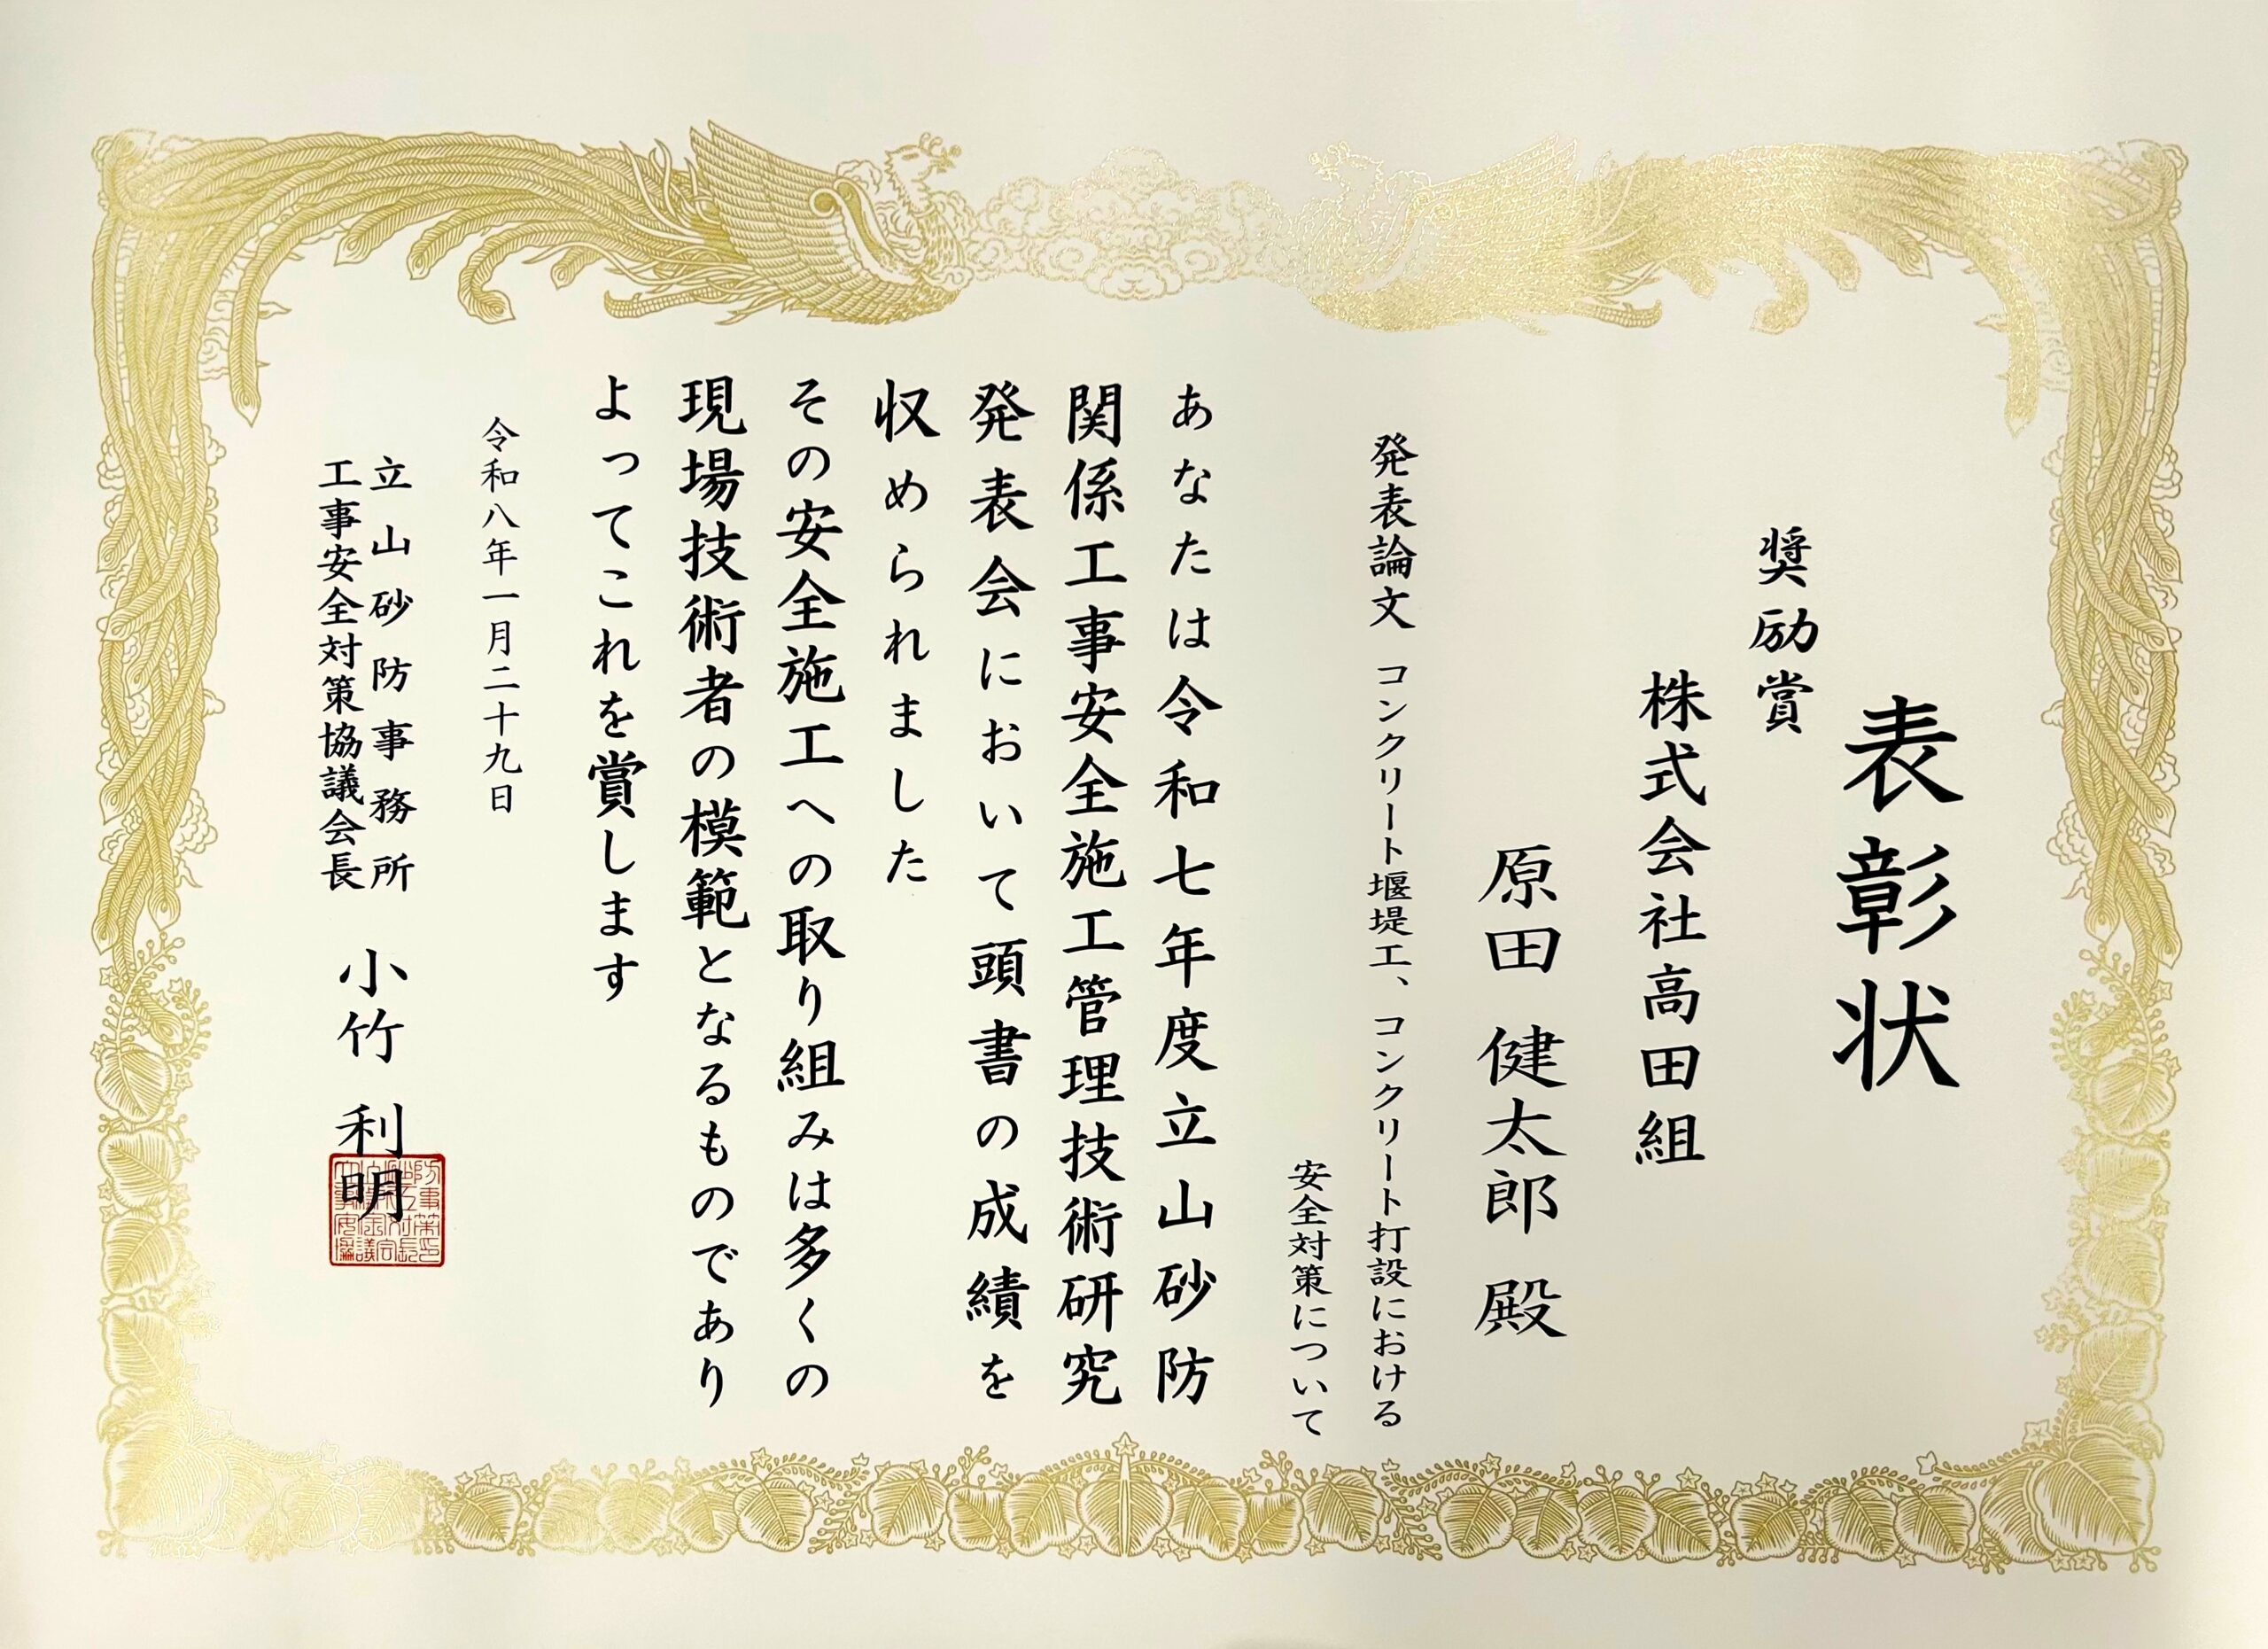 表彰状
奨励賞
株式会社高田組
原田 健太郎 殿
発表論文 コンクリート堰堤工、コンクリート打設における
安全対策について
あなたは令和七年度立山砂防
関係工事安全施工管理技術研究
発表会において頭書の成績を
収められました
その安全施工への取り組みは多くの
現場技術者の模範となるものであり
よってこれを賞します
令和八年一月二十九日
立山砂防事務所
工事安全対策協議会長
小竹 利明